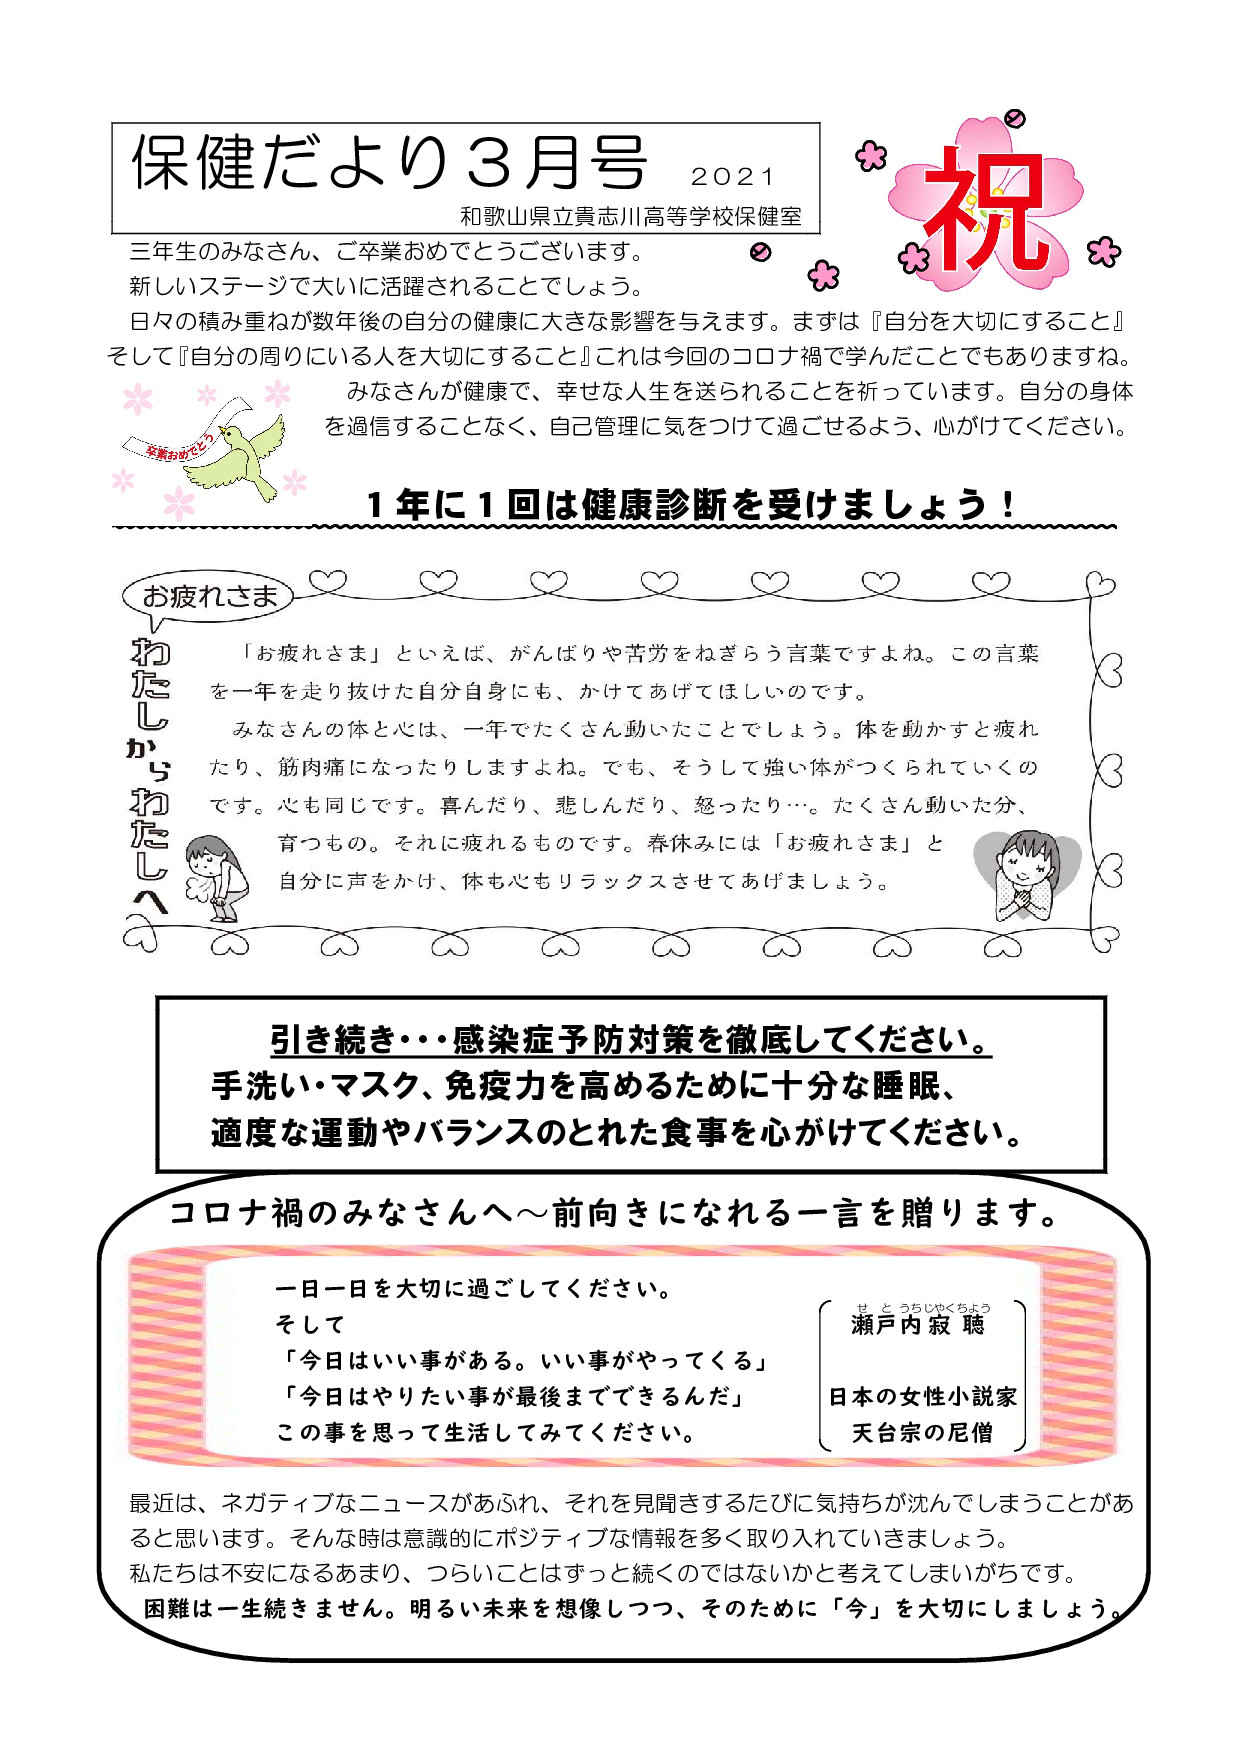 保健だより３月号　２０２１
和歌山県立貴志川高等学校保健室
祝
三年生のみなさん、ご卒業おめでとうございます。
新しいステージで大いに活躍されることでしょう。
日々の積み重ねが数年後の自分の健康に大きな影響を与えます。まずは『自分を大切にすること』
そして『自分の周りにいる人を大切にすること』これは今回のコロナ禍で学んだことでもありますね。
みなさんが健康で、幸せな人生を送られることを祈っています。自分の身体
を過信することなく、自己管理に気をつけて過ごせるよう、心がけてください。
卒業おめでとう
１年に１回は健康診断を受けましょう！
お疲れさま
わたしからわたしへ
「お疲れさま」といえば、がんばりや苦労をねぎらう言葉ですよね。この言葉
を一年を走り抜けた自分自身にも、かけてあげてほしいのです。
みなさんの体と心は、一年でたくさん動いたことでしょう。体を動かすと疲れ
たり、筋肉痛になったりしますよね。でも、そうして強い体がつくられていくの
です。心も同じです。喜んだり、悲しんだり、怒ったり…。たくさん動いた分、
育つもの。それに疲れるものです。春休みには「お疲れさま」と
自分に声をかけ、体も心もリラックスさせてあげましょう。
引き続き・・・感染症予防対策を徹底してください。
手洗い・マスク、免疫力を高めるために十分な睡眠、
適度な運動やバランスのとれた食事を心がけてください。
コロナ禍のみなさんへ～前向きになれる一言を贈ります。
一日一日を大切に過ごしてください。
そして
「今日はいい事がある。いい事がやってくる」
「今日はやりたい事が最後までできるんだ」
この事を思って生活してみてください。
せとうちじゃくちょう
瀬戸内寂聴
日本の女性小説家
天台宗の尼僧
最近は、ネガティブなニュースがあふれ、それを見聞きするたびに気持ちが沈んでしまうことがあ
ると思います。そんな時は意識的にポジティブな情報を多く取り入れていきましょう。
私たちは不安になるあまり、つらいことはずっと続くのではないかと考えてしまいがちです。
困難は一生続きません。明るい未来を想像しつつ、そのために「今」を大切にしましょう。